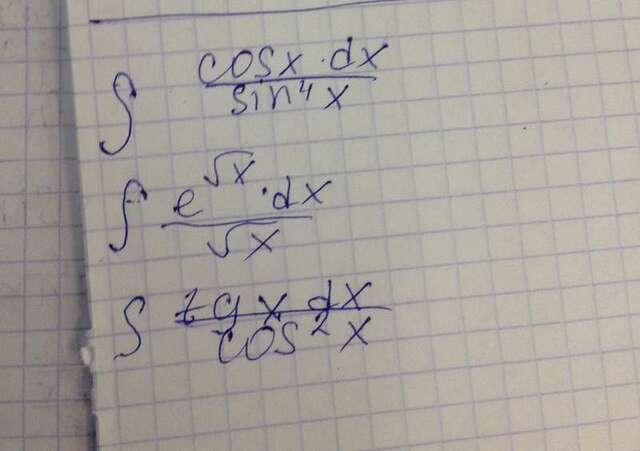 ∫ cosx·dx / sin⁴x
∫ e^√x·dx / √x
∫ tg x dx / cos²x